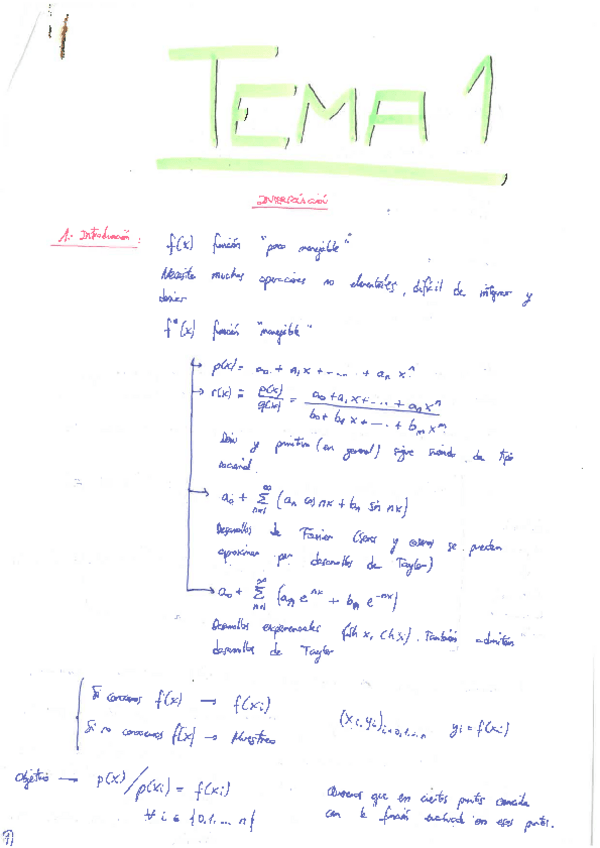 TEMA 1
INTERPOLACIÓN
1.- Introducción:
f(x) función "poco manejable"
Necesita muchas operaciones no elementales, difícil de integrar y
derivar
f*(x) función "manejable"
p(x) = a₀ + a₁x + ---- + aₙ xⁿ
r(x) = p(x)/q(x) = (a₀ + a₁x + --- + aₙxⁿ)/(b₀ + b₁x + --- + bₘxᵐ)
Deriv y primitiva (en general) sigue siendo de tipo
racional.
a₀ + Σ_{n=1}^{∞} (aₙ cos nx + bₙ sin nx)
Desarrollos de Fourier (senos y cosenos se pueden
aproximar por desarrollos de Taylor)
a₀ + Σ_{n=1}^{∞} (aₙ e^{nx} + bₙ e^{-nx})
Desarrollos exponenciales (sh x, ch x). También admiten
desarrollos de Taylor
Si conocemos f(x) → f(xᵢ)
Si no conocemos f(x) → Muestreo
(xᵢ, yᵢ)_{i=0,1,...n} yᵢ = f(xᵢ)
Objetivo → p(x) / p(xᵢ) = f(xᵢ)
∀ i ∈ {0,1,... n}
Queremos que en ciertos puntos coincida
con la función evaluada en esos puntos.
1)